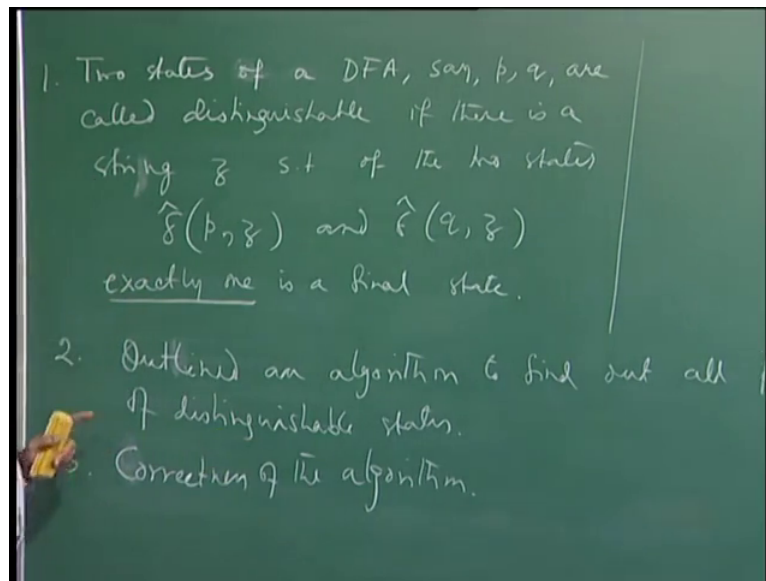 1. Two states of a DFA, say, p, q, are
called distinguishable if there is a
string z s.t of the two states
δ̂(p, z) and δ̂(q, z)
exactly one is a final state.
2. Outlined an algorithm to find out all
of distinguishable states.
3. Correctness of the algorithm.